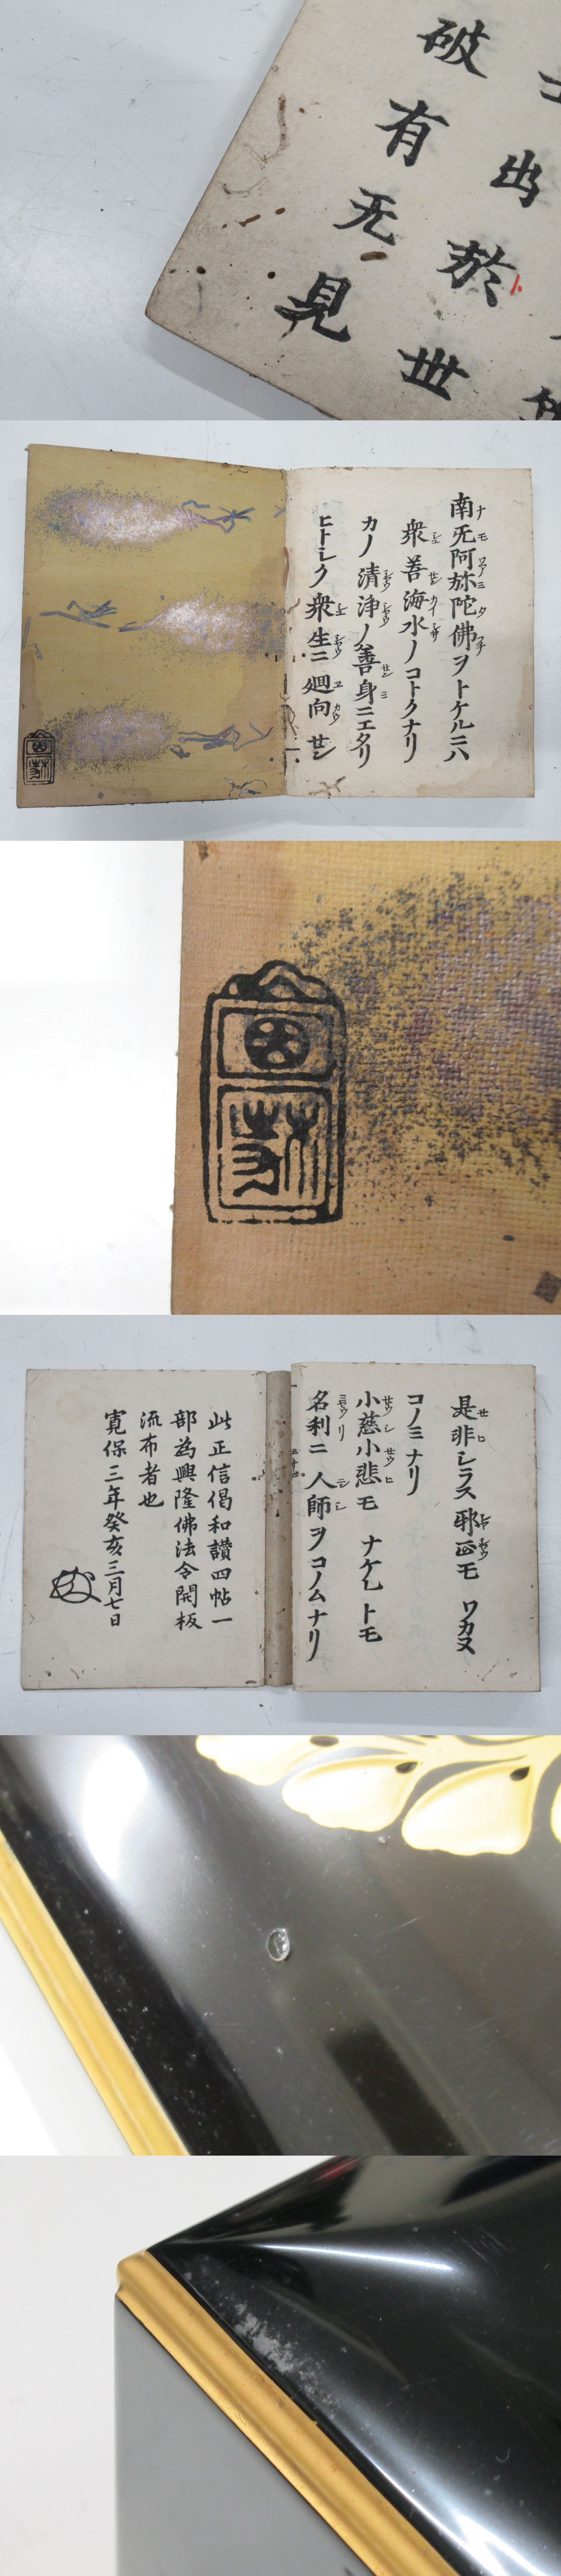 士出於世
破有无見
南无阿弥陀佛ヲトケルニハ
ナモワアミタフチ
衆善海水ノコトクナリ
カノ清浄ノ善身ニエタリ
ヒトシク衆生ニ廻向セン
是非シラス邪正モワカヌ
コノミナリ
小慈小悲モナケレトモ
名利ニ人師ヲコノムナリ
此正信偈和讃四帖一
部為興隆佛法令開板
流布者也
寛保三年癸亥三月七日